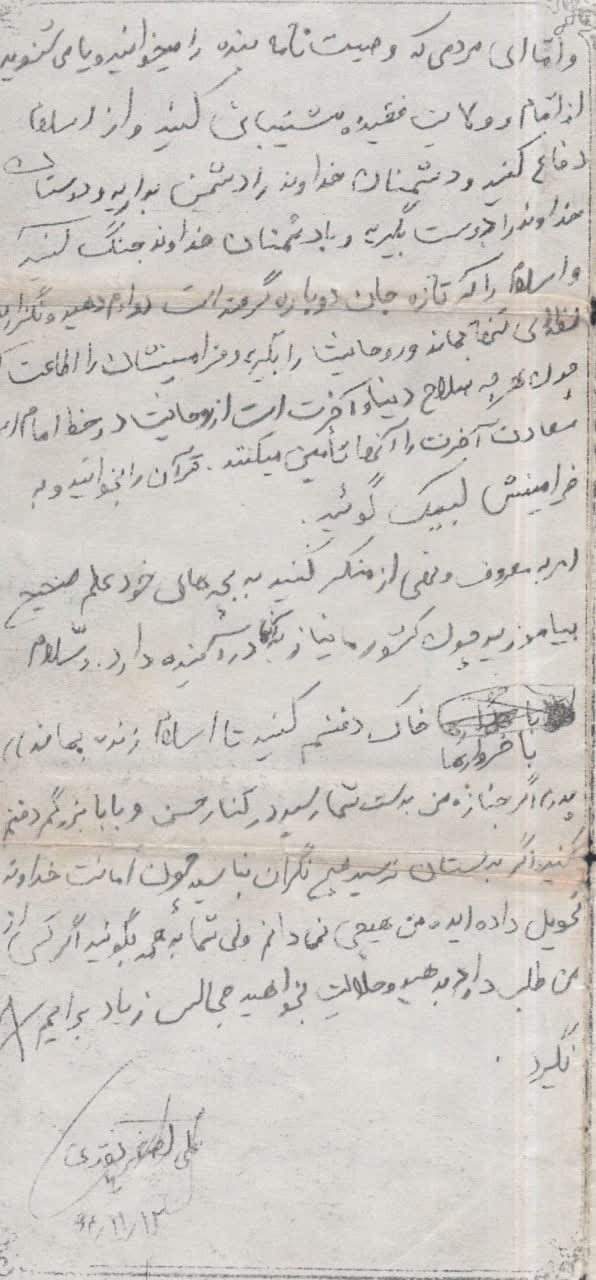 و امّا ای مردمی که وصیت نامه بنده را میخوانید و یا می شنوید
از امام و ولایت فقیه پشتیبانی کنید و از اسلام
دفاع کنید و دشمنان خداوند را دشمن بدارید و دوستان
خداوند را دوست بگیرید و با دشمنان خداوند جنگ کنید
و اسلام را که تازه جان دوباره گرفته است دوام دهید و نگذارید
تنها بماند و روحانیت را بگیرید و فرامینشان را اطاعت
چون هر چه صلاح دنیا و آخرت است از روحانیت در خط امام
سعادت آخرت را آنها تأمین میکنند. قرآن را بخوانید و به
فرامینش لبیک گوئید.
امر به معروف و نهی از منکر کنید به بچه های خود علم صحیح
بیاموزید چون کشور ما نیاز به آنها در آینده دارد. والسّلام
با خروارها خاک دفنم کنید تا اسلام زنده بماند
پدرم اگر جنازه من بدست شما رسید در کنار حسن و بابا بزرگم دفنم
کنید و اگر بدستان نرسید هیچ نگران نباشید چون امانت خداوند
تحویل داده اید. من هیچی نمی دانم ولی شما به همه بگوئید اگر کسی از
من طلب دارد بدهید و حلالیت بخواهید مجالس زیاد برایم
نگیرید.
علی اصغر
۶۴/۱۱/۱۳